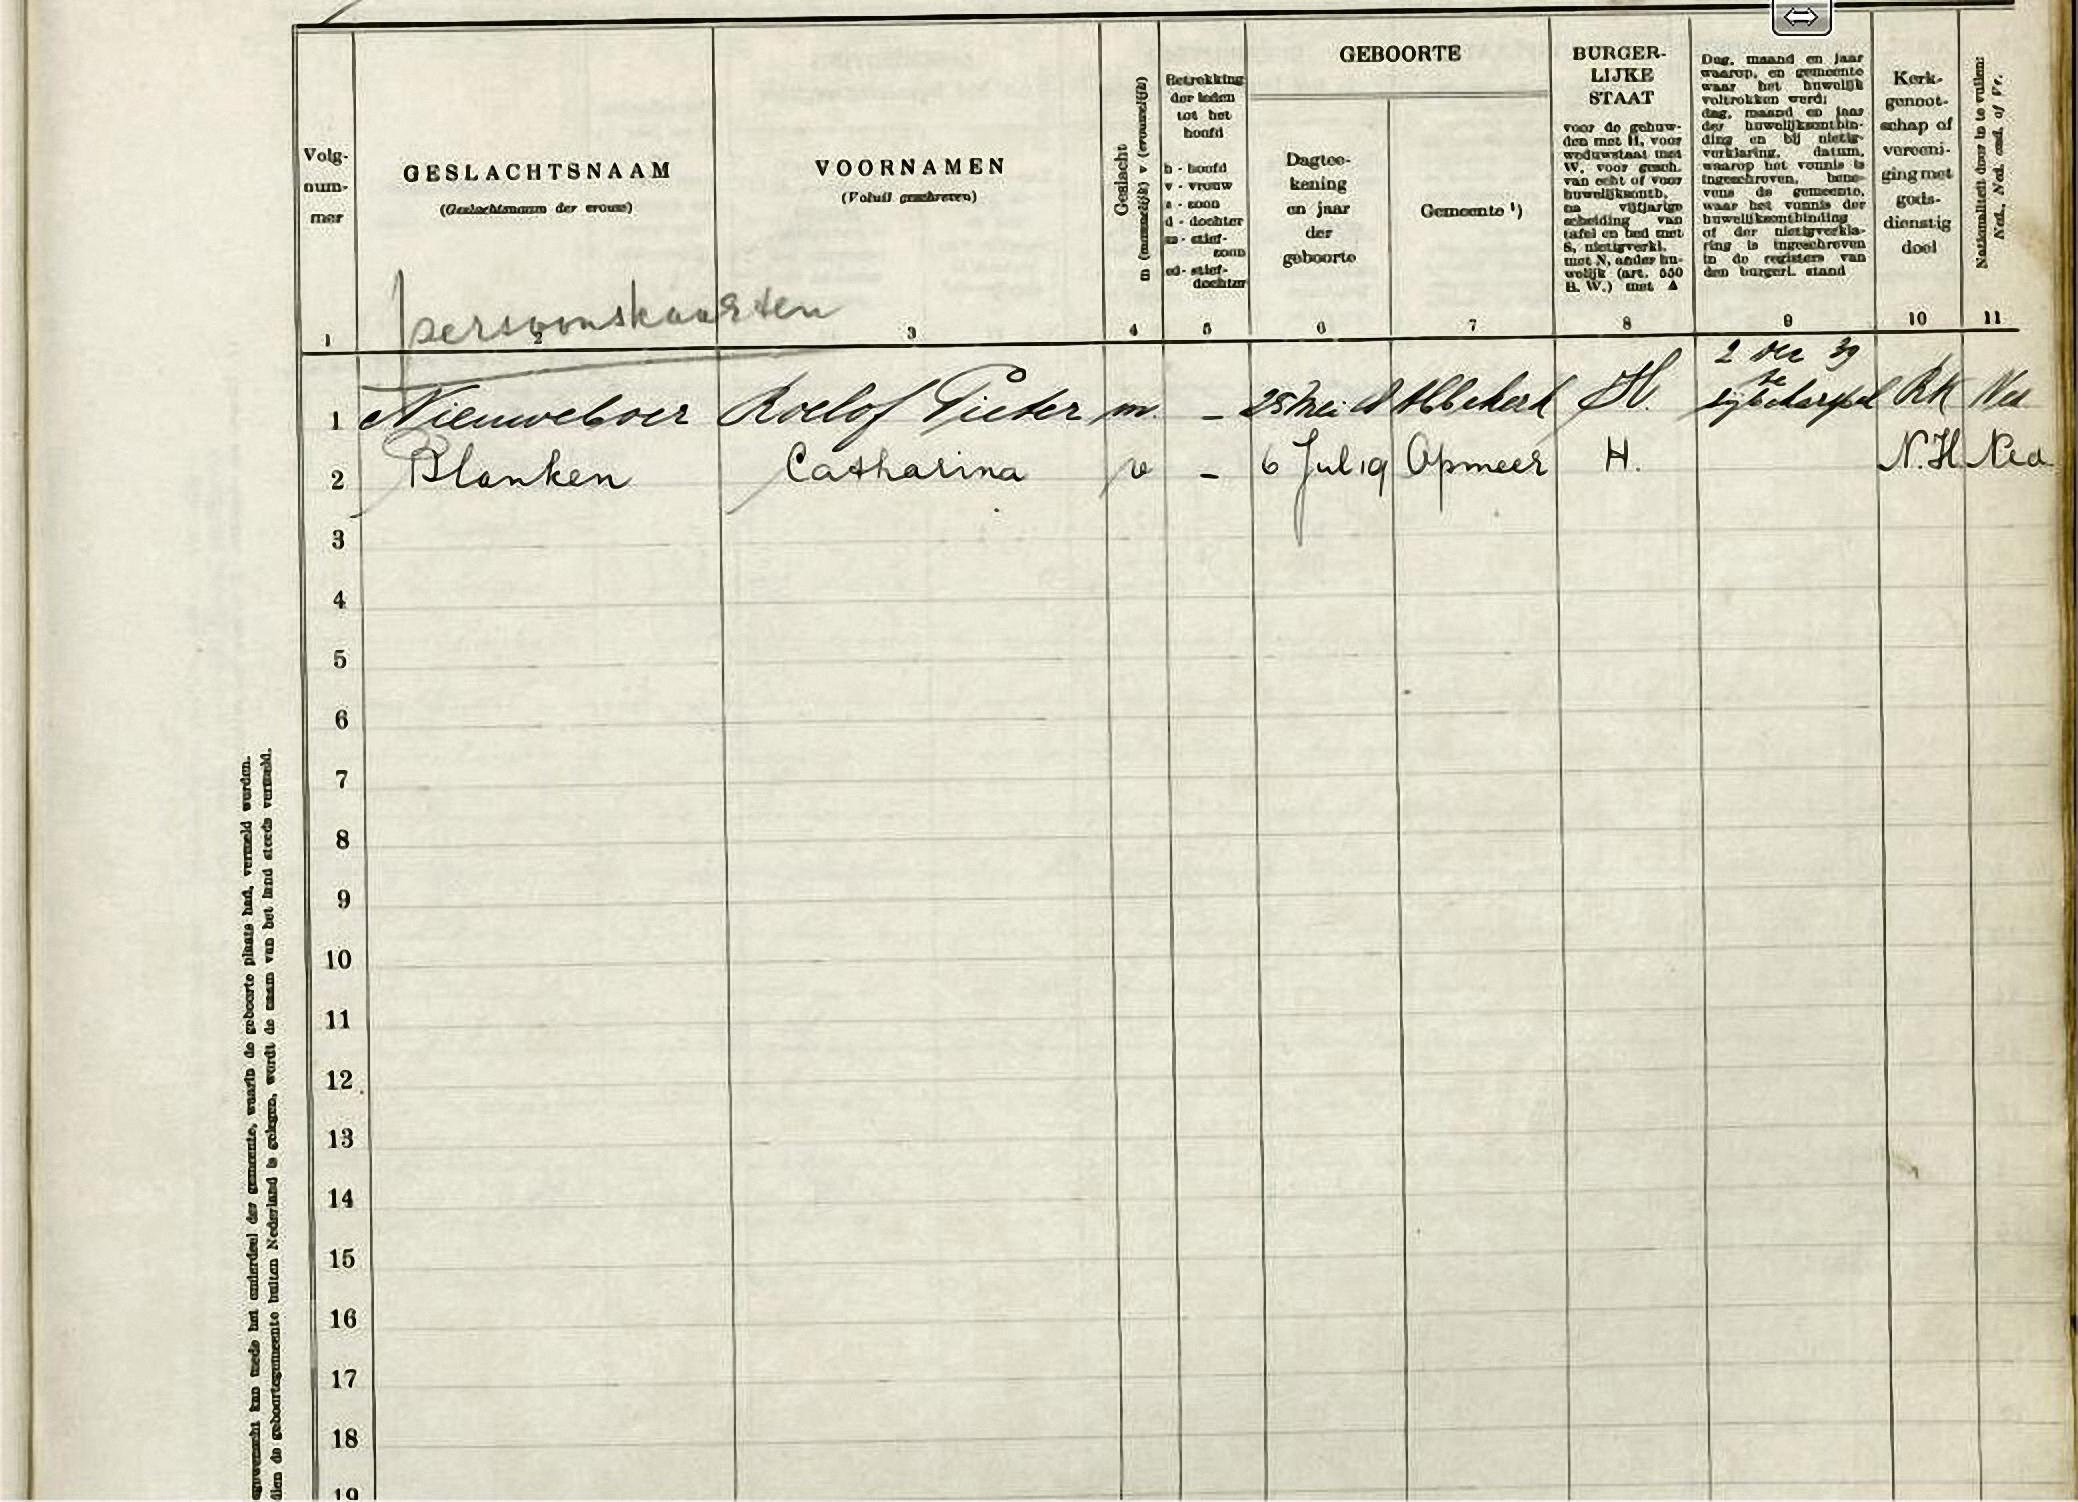 GEBOORTE
Volg-
num-
mer
GESLACHTSNAAM
(Geslachtsnaam der vrouw)
VOORNAMEN
(Voluit geschreven)
Geslacht
m (mannelijk) v (vrouwelijk)
Betrekking
der leden
tot het
hoofd
h - hoofd
v - vrouw
z - zoon
d - dochter
sz - stief-
zoon
sd - stief-
dochter
Dagtee-
kening
en jaar
der
geboorte
Gemeente ¹)
BURGER-
LIJKE
STAAT
voor de gehuw-
den met H, voor
weduwstaat met
W, voor gesch.
van echt of voor
huwelijksontb.
na vijfjarige
scheiding van
tafel en bed met
S, nietigverkl.
met N, ander hu-
welijk (art. 550
B. W.) met A
Dag, maand en jaar
waarop, en gemeente
waar het huwelijk
voltrokken werd;
dag, maand en jaar
der huwelijksontbin-
ding en bij nietig-
verklaring, datum,
waarop het vonnis is
ingeschreven, bene-
vens de gemeente,
waar het vonnis der
huwelijksontbinding
of der nietigverkla-
ring is ingeschreven
in de registers van
den burgerl. stand
Kerk-
genoot-
schap of
vereeni-
ging met
gods-
dienstig
doel
Nationaliteit door in te vullen:
Ned., Ned. ond. of Vr.
persoonskaarten
1 2 3 4 5 6 7 8 9 10 11
2 Dec 39
1 Nieuweboer Roelof Pieter m. - 25 Mei Abbekerk H. RK Ned
2 Blanken Catharina v - 6 Jul 19 Opmeer H. N.H Ned
3
4
5
6
7
8
9
10
11
12
13
14
15
16
17
18
19
kan mede het onderdeel der gemeente, waarin de geboorte plaats had, vermeld worden.
dien de geboortegemeente buiten Nederland is gelegen, wordt de naam van het land steeds vermeld.